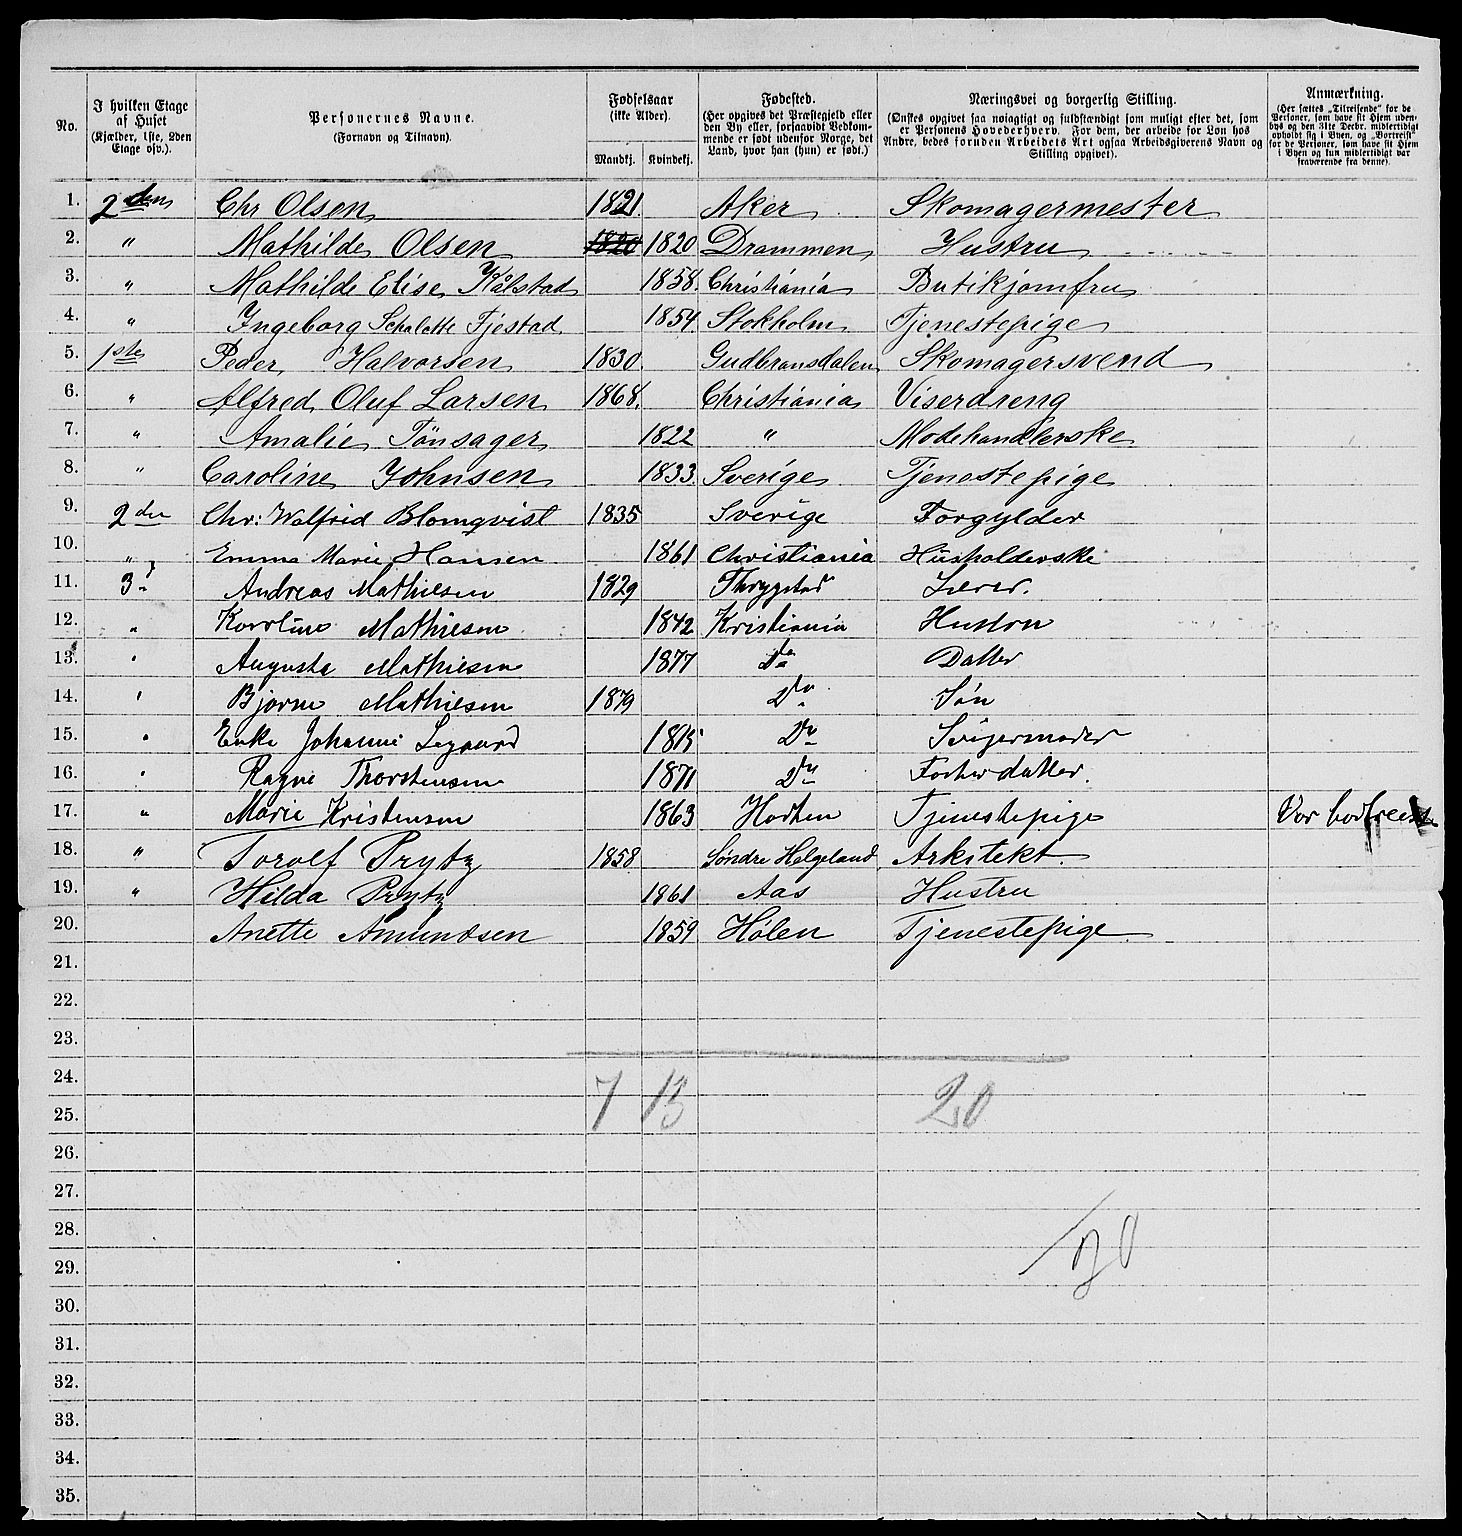 No. | I hvilken Etage af Huset (Kjælder, 1ste, 2den Etage osv.). | Personernes Navne. (Fornavn og Tilnavn). | Fødselsaar (ikke Alder). Mandkj. | Kvindekj. | Fødested. (Her opgives det Præstegjeld eller den By eller, forsaavidt Vedkommende er født udenfor Norge, det Land, hvor han (hun) er født.) | Næringsvei og borgerlig Stilling. (Ønskes opgivet saa nøiagtigt og fuldstændigt som muligt efter det, som er Personens Hovederhverv. For dem, der arbeide for Løn hos Andre, bedes foruden Arbeidets Art ogsaa Arbeidsgiverens Navn og Stilling opgivet). | Anmærkning. (Her sættes „Tilreisende“ for de Personer, som have sit Hjem udenbys og den 31te Decbr. midlertidigt opholdt sig i Byen, og „Bortreist“ for de Personer, som have sit Hjem i Byen og kun midlertidigt var fraværende fra denne).
1. 2den Chr Olsen 1821. Aker Skomagermester
2. " Mathilde Olsen 1820 1820 Drammen Hustru
3. " Mathilde Elise Kålstad 1858. Christiania Butikjomfru
4. " Ingeborg Schalotte Fjestad 1854. Stokholm Tjenestepige
5. 1ste Peder Halvorsen 1830. Gudbransdalen Skomagersvend
6. " Alfred Oluf Larsen 1868. Christiania Viserdreng
7. " Amalie Tønsager 1822 " Modehandlerske
8. " Caroline Johnsen 1833. Sverige Tjenestepige
9. 2den Chr: Walfrid Blomqvist 1835 Sverige Forgylder
10. " Emma Marie Hansen 1861 Christiania Husholderske
11. 3d Andreas Mathiesen 1829 Thrygstad Lærer.
12. " Karoline Mathiesen 1842 Kristiania Hustru
13. " Augusta Mathiesen 1877 Do Datter
14. " Bjarne Mathiesen 1879 Do Søn
15. " Enke Johanne 1815 Do Svigermoder
16. " Ragne Thorstensen 1871 Do Fosterdatter.
17. " Marie Kristensen 1863 Horten Tjenestepige Var bortreist
18. " Torolf Prytz 1858 Søndre Helgeland Arkitekt.
19. " Hilda Prytz 1861 Aas Hustru
20. Anette Amundsen 1859 Hølen Tjenestepige
21.
22.
23.
24. 7 13 20
25.
26.
27.
28.
29.
30.
31.
32.
33.
34.
35.